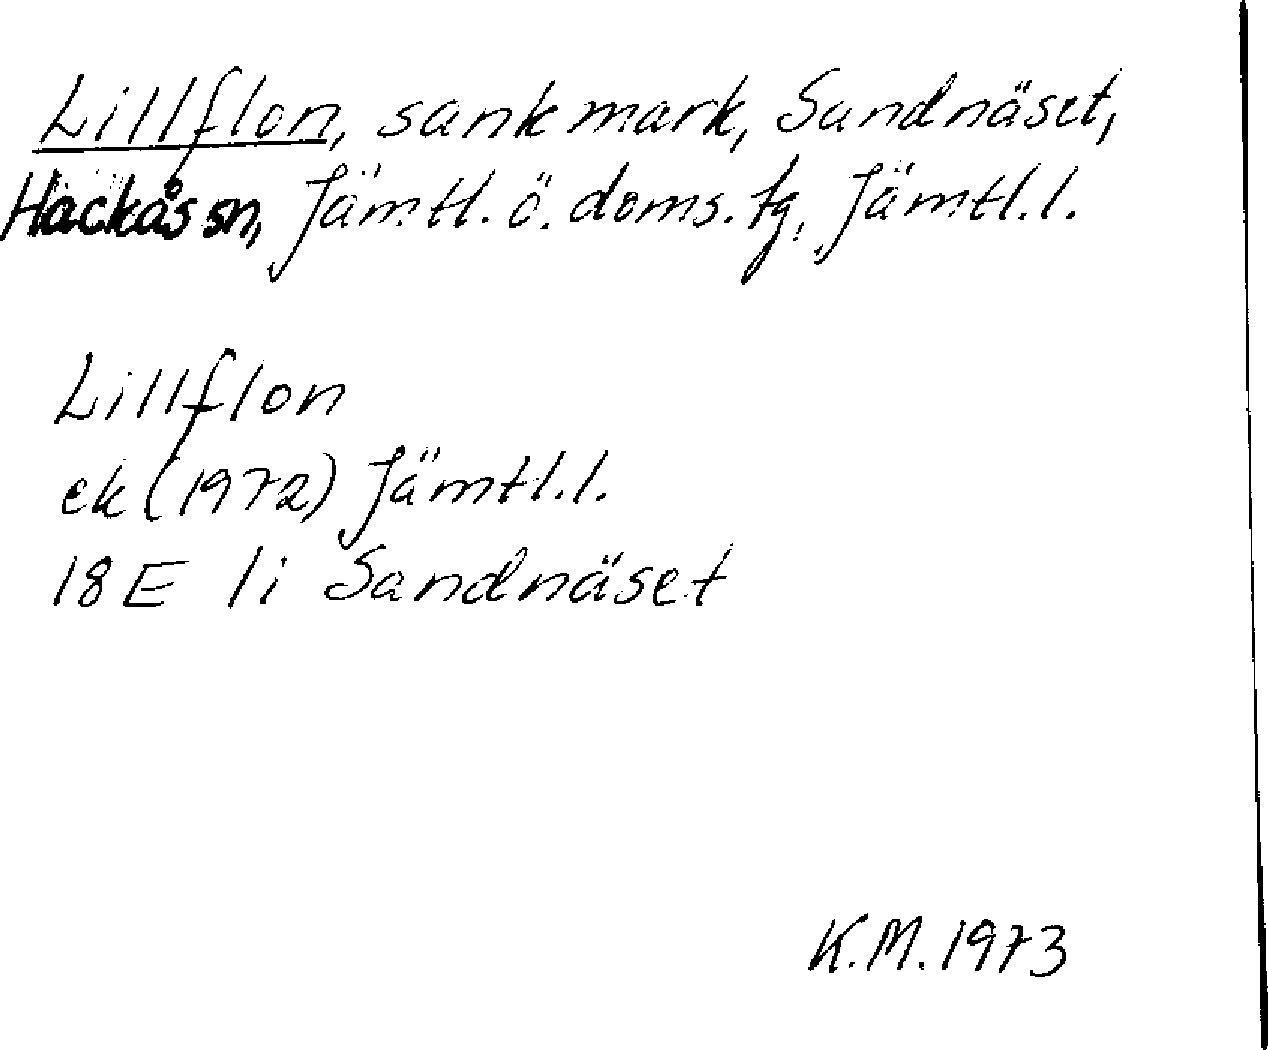 Lillflon, sank mark, Sandnäset,
Hackås sn, Jämtl. ö. doms. tg, Jämtl. l.
Lillflon
ek (1972) Jämtl. l.
18E 1i Sandnäset
K.M. 1973